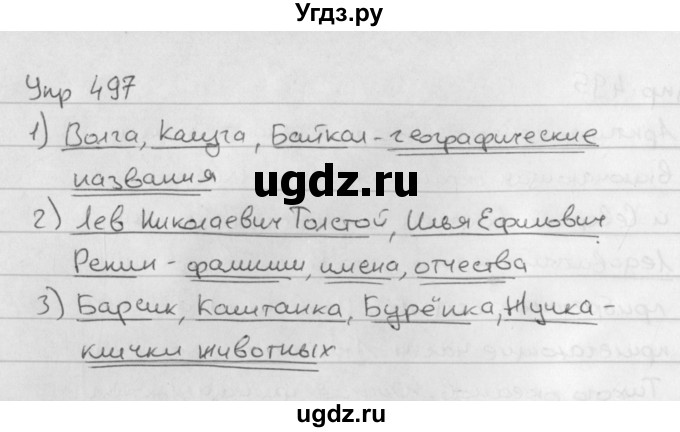 Угдз.ру
Упр 497
1) Волга, Калуга, Байкал - географические
названия
ugdz.ru
2) Лев Николаевич Толстой, Илья Ефимович
Репин - фамилии, имена, отчества
3) Барсик, Каштанка, Бурёнка, Жучка
клички животных
ugdz.ru